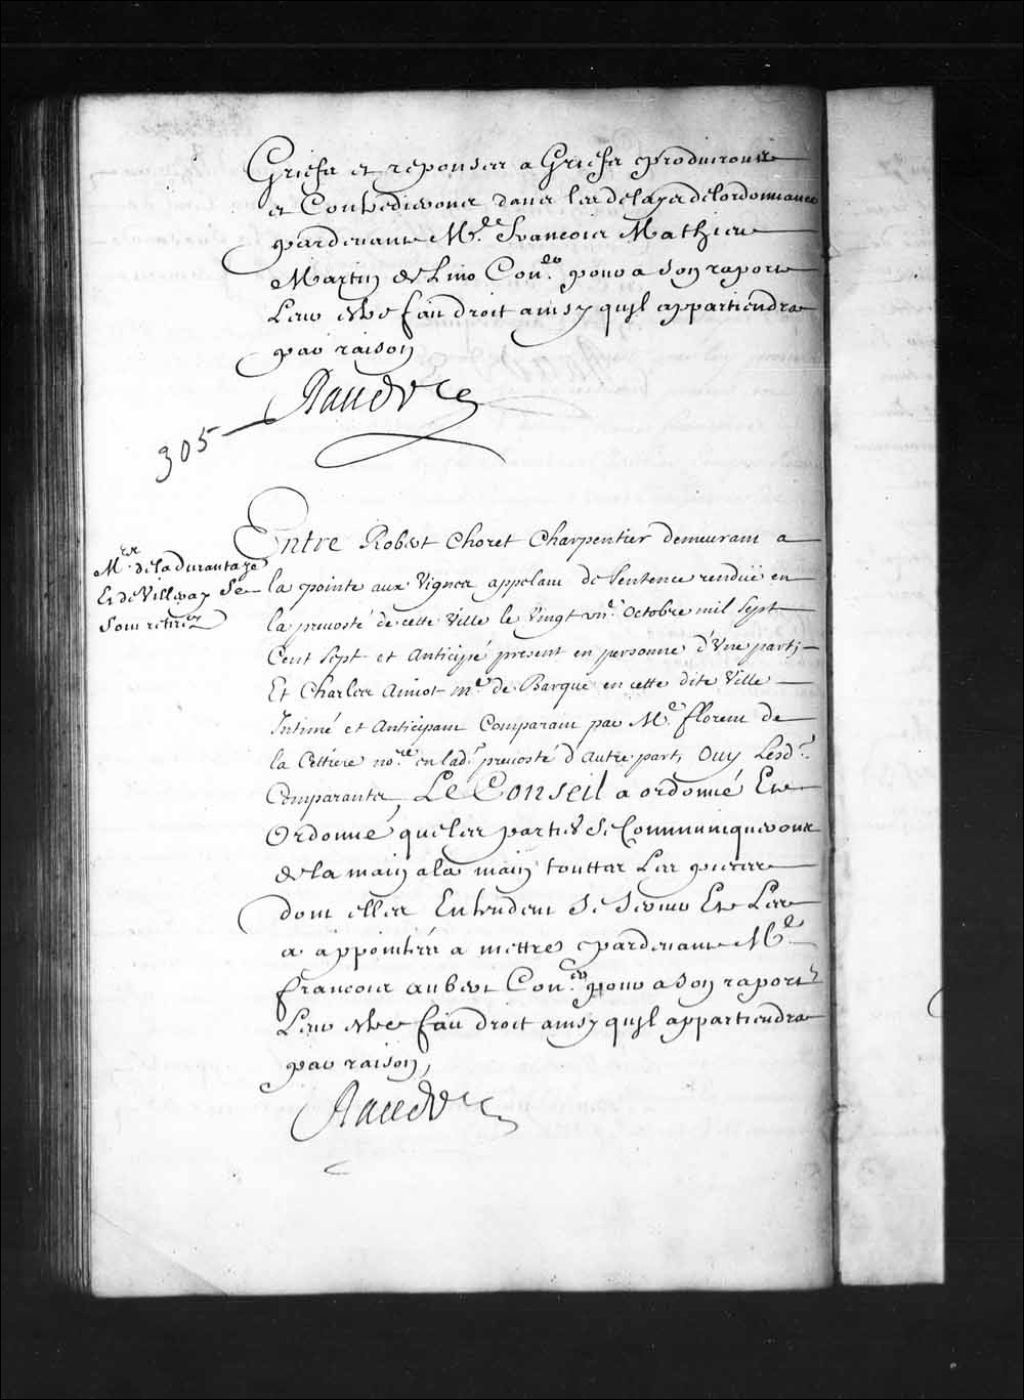 Griefs et reponses a Griefs produiront
et Contrediront dans les delays de lordonnance
pardevant Mre. Francois Mathieu
Martin de Lino Coner. pour a son raport
Leur estre fait droit ainsy quil appartiendra
par raison
Raudot
305
Entre Robert Choret Charpentier demeurant a
Mrs. de la durantaye
Et de Villeray Se
sont retirez
la pointe aux Vignes appelant de Sentence renduë en
la prevosté de cette Ville le Vingt une. Octobre mil Sept
Cent Sept et Anticipé present en personne d'Une part,
Et Charles Amiot me. de Barque en cette dite Ville
Intimé et Anticipant Comparant par Me. florent de
la Cettiere nore. en lad. prevosté d'Autre part, Ouy Lesd.
Comparants, Le Conseil a ordonné Et
Ordonne, que les parties Se Communiqueront
de la main a la main touttes Les pieces
dont elles Entendent Se Servir Et Les
a appointées a mettres pardevant Mre
francois aubert Coner. pour a son raport
Leur estre fait droit ainsy quil appartiendra
par raison,
Raudot